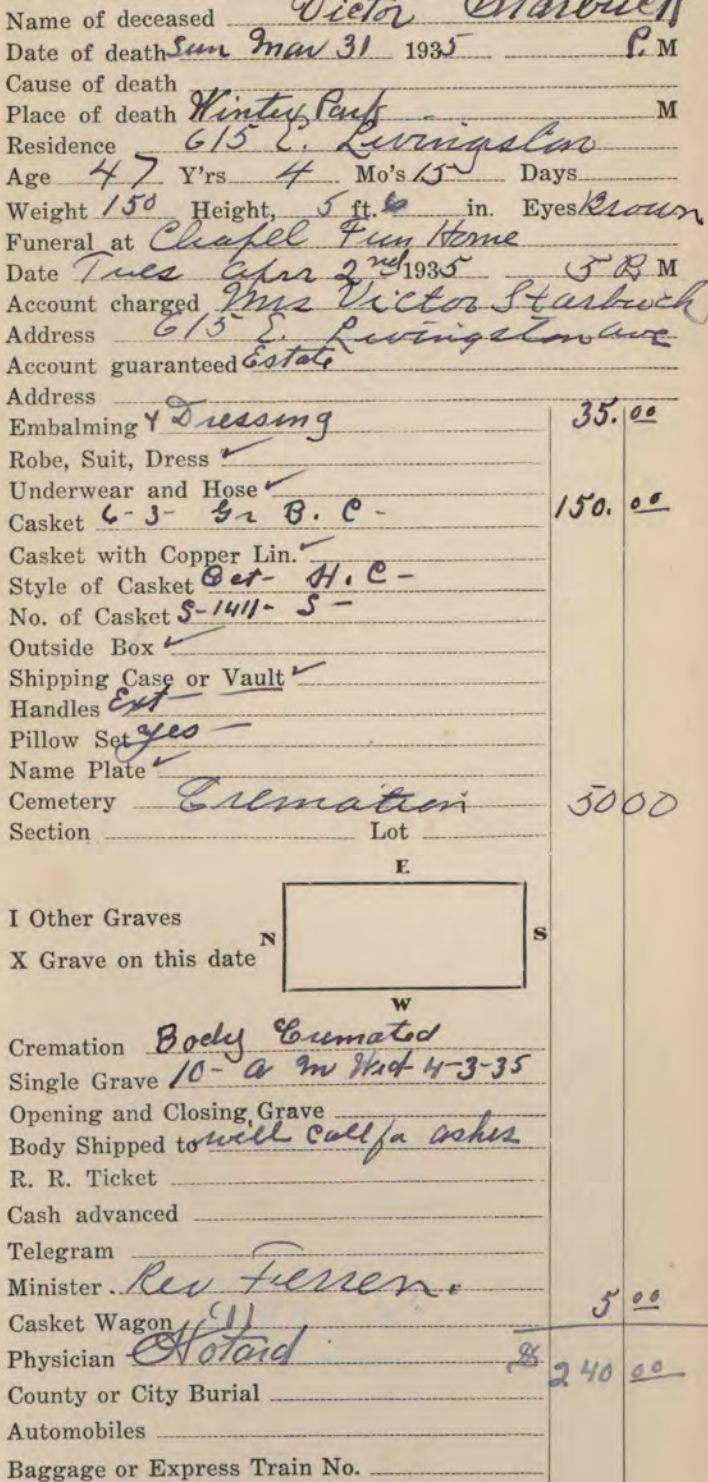 Name of deceased Victor Starbuck
Date of death Sun Mar 31 1935 P. M
Cause of death
Place of death Winter Park M
Residence 615 E. Livingston
Age 47 Y'rs 4 Mo's 15 Days
Weight 150 Height, 5 ft. 6 in. Eyes Brown
Funeral at Chapel Fun Home
Date Tues Apr 2nd 1935 5 P M
Account charged Mrs Victor Starbuck
Address 615 E. Livingston ave
Account guaranteed Estate
Address
Embalming & Dressing 35.00
Robe, Suit, Dress ✓
Underwear and Hose ✓
Casket 6-3- Gr B. C - 150.00
Casket with Copper Lin. ✓
Style of Casket Oct- H. C -
No. of Casket S-1411- S -
Outside Box ✓
Shipping Case or Vault ✓
Handles Ext -
Pillow Set yes -
Name Plate ✓
Cemetery Cremation 50 00
Section Lot
E
I Other Graves
N S
X Grave on this date
W
Cremation Body Cremated
Single Grave 10- a m Wed 4-3-35
Opening and Closing Grave
Body Shipped to will call for ashes
R. R. Ticket
Cash advanced
Telegram
Minister. Rev
Casket Wagon (1) 5 00
Physician Hotard $ 240 00
County or City Burial
Automobiles
Baggage or Express Train No.